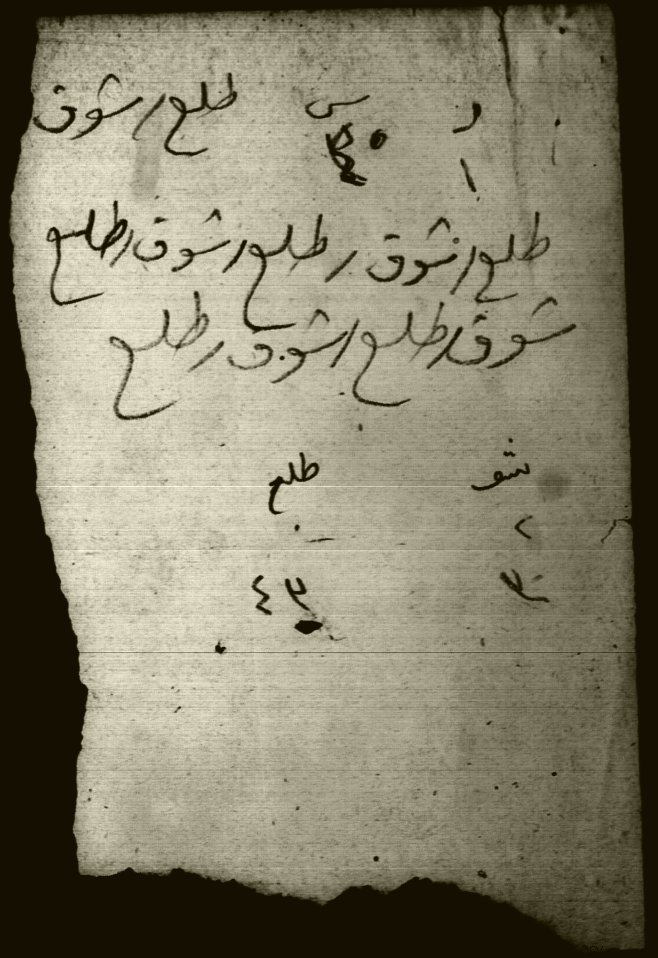 د س طلع / شوق
١
طلع / شوق / طلع / شوق / طلع
شوق / طلع / شوق / طلع
شو طلع
٢ ٠
٣ ٤٣